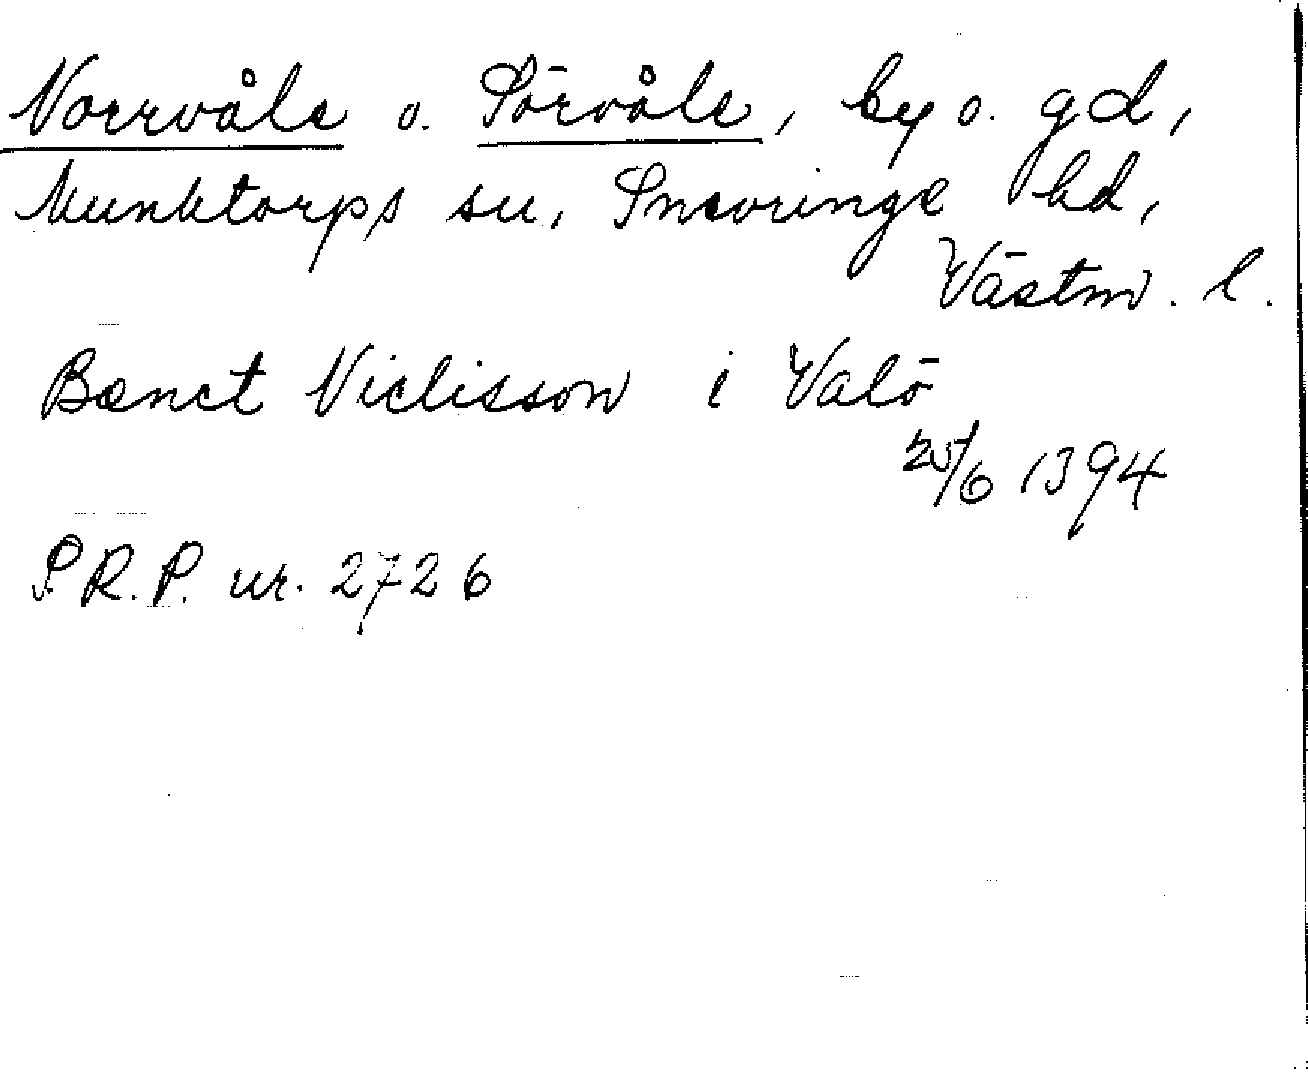 Norrvåle o. Sörvåle, by o. gd,
Munktorps sn, Snevringe hd,
Västm. l.
Bænct Niclisson i Valö
25/6 1394
S.R.P. nr. 2726